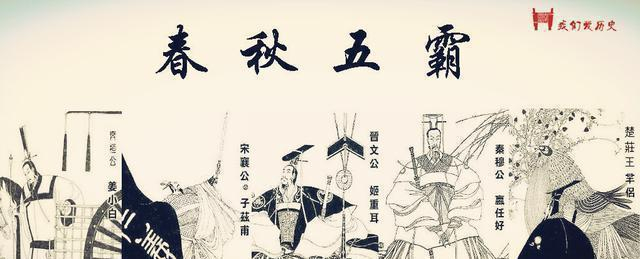 我们爱历史
春秋五霸
齊桓公 姜小白
宋襄公 子茲甫
晉文公 姬重耳
秦穆公 嬴任好
楚莊王 羋侶